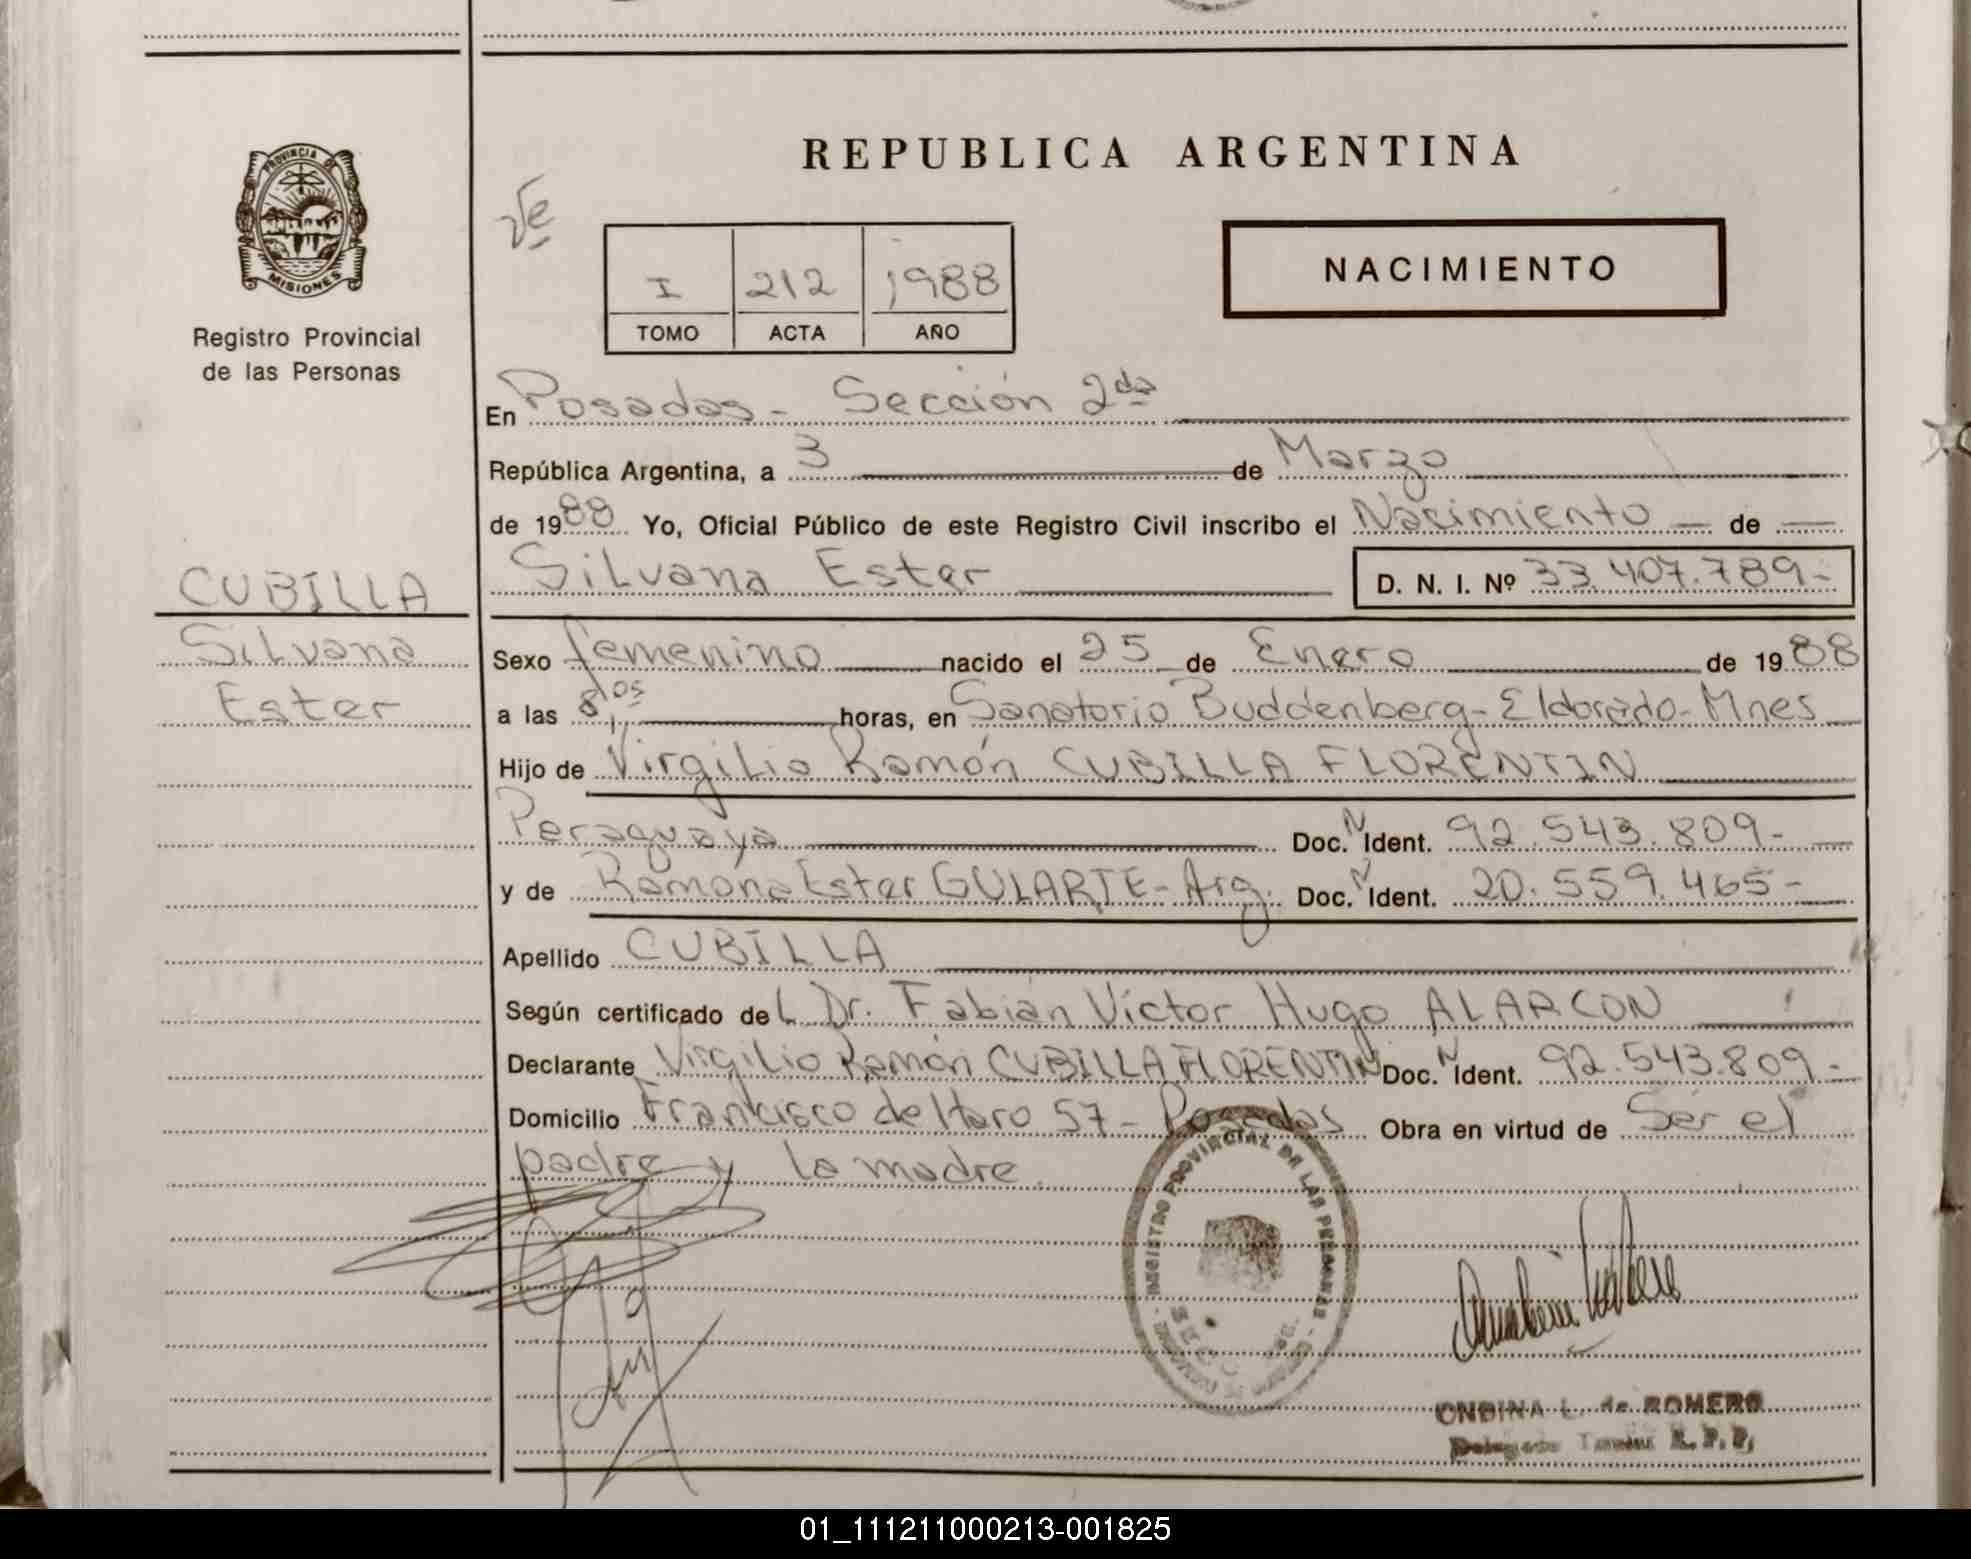 REPUBLICA ARGENTINA
PROVINCIA DE
MISIONES
Registro Provincial
de las Personas
I 212 1988
TOMO ACTA AÑO
NACIMIENTO
En Posadas - Sección 2da
República Argentina, a 3 de Marzo
de 1988 Yo, Oficial Público de este Registro Civil inscribo el Nacimiento — de —
CUBILLA
Silvana
Ester
Silvana Ester D. N. I. Nº 33.407.789-
Sexo femenino nacido el 25 de Enero de 1988
a las 8,10s horas, en Sanatorio Buddenberg - Eldorado - Mnes
Hijo de Virgilio Ramón CUBILLA FLORENTIN
Peraguaya Doc. N Ident. 92.543.809-
y de Ramona Ester GULARTE - Arg. Doc. N Ident. 20.559.465-
Apellido CUBILLA
Según certificado del Dr. Fabián Víctor Hugo ALARCON
Declarante Virgilio Ramón CUBILLA FLORENTIN Doc. N Ident. 92.543.809-
Domicilio Francisco de Haro 57 - Posadas Obra en virtud de Ser el
padre y la madre.
REGISTRO PROVINCIAL DE LAS PERSONAS
ONDINA L. de ROMERO
R. P. P.
01_111211000213-001825